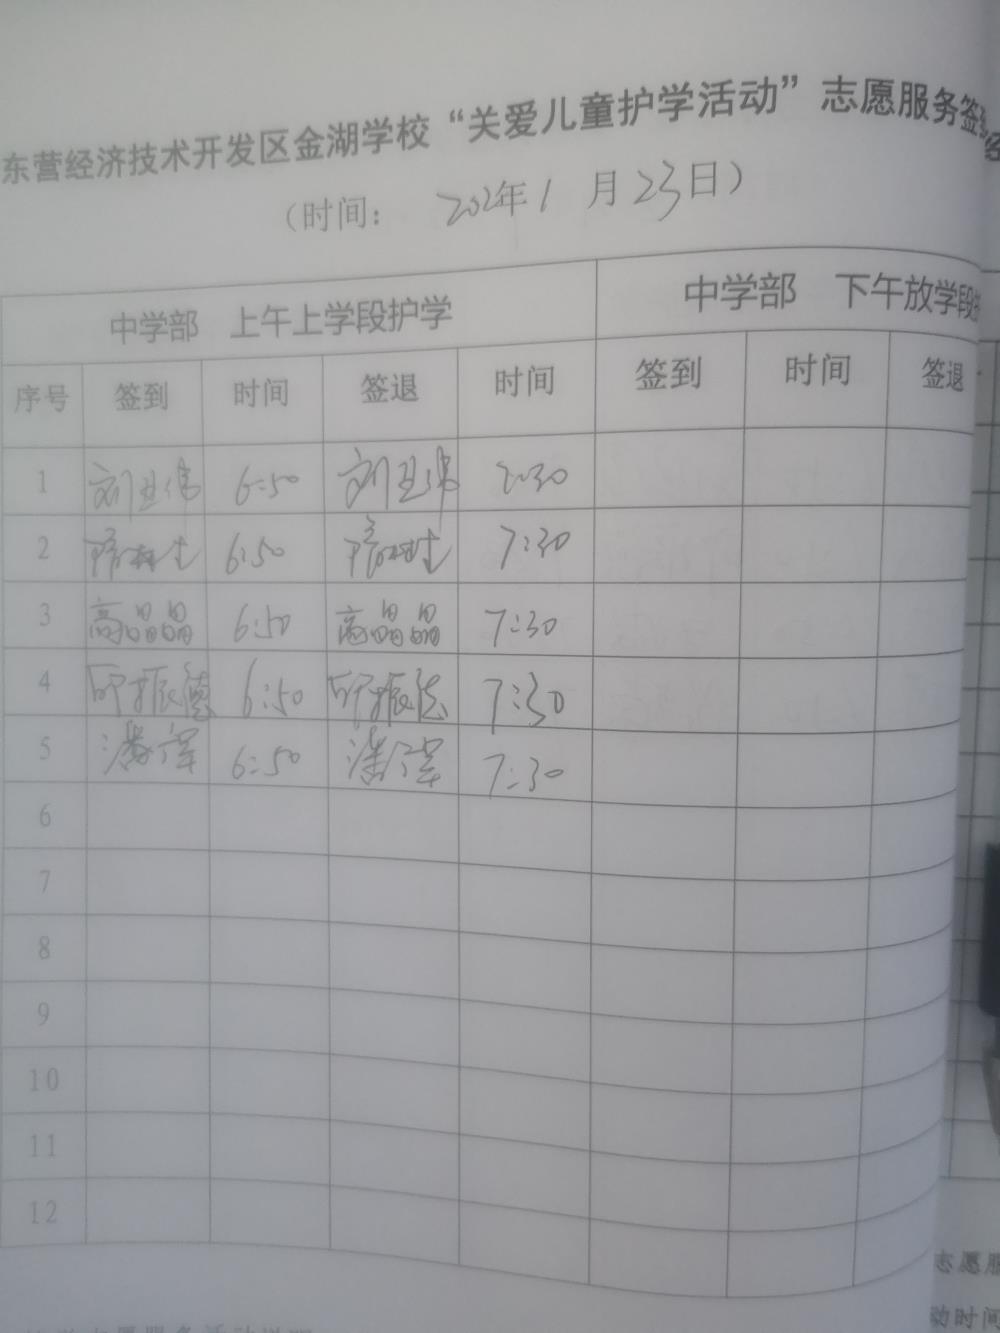 东营经济技术开发区金湖学校“关爱儿童护学活动”志愿服务签
（时间： 2024年1月23日）
中学部 上午上学段护学 中学部 下午放学段
序号 签到 时间 签退 时间 签到 时间 签退
1 刘卫伟 6:50 刘卫伟 7:30
2 6:50 7:30
3 高晶晶 6:50 高晶晶 7:30
4 振德 6:50 振德 7:30
5 潘 6:50 潘 7:30
6
7
8
9
10
11
12
志愿服
动时间